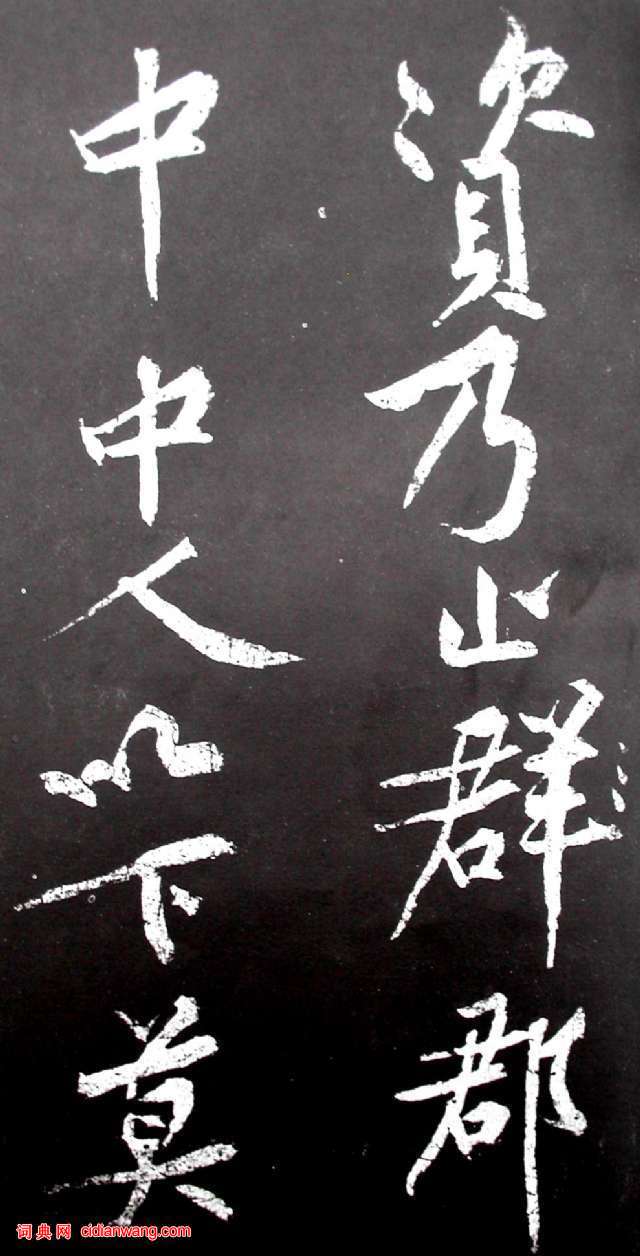 資乃止群郡
中中人以下莫
词典网 cidianwang.com